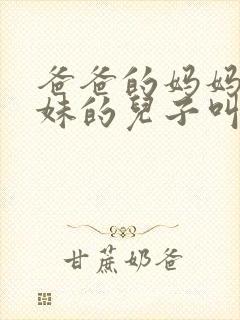 爸爸的妈妈
妹的兒子叫
甘蔗奶爸